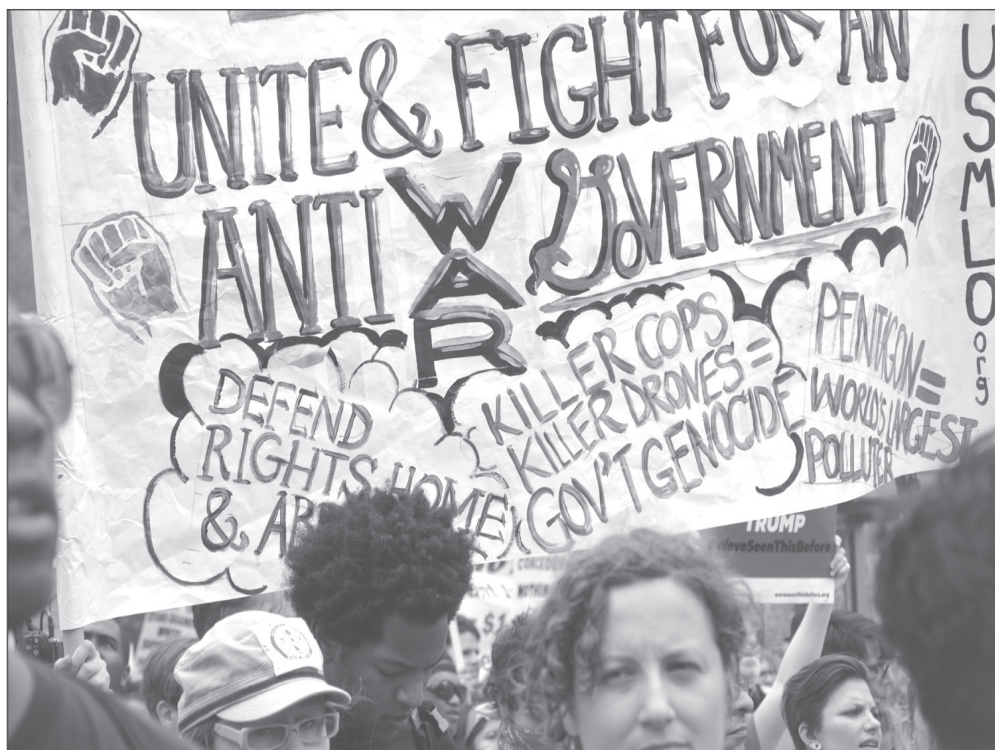 UNITE & FIGHT FOR AN
ANTI WAR GOVERNMENT
DEFEND
RIGHTS HOME
&
KILLER COPS
KILLER DRONES =
GOV'T GENOCIDE
PENTAGON =
WORLD'S LARGEST
POLLUTER
USMLO.org
TRUMP
#WeveSeenThisBefore
weveseenthisbefore.org
NOTHIN